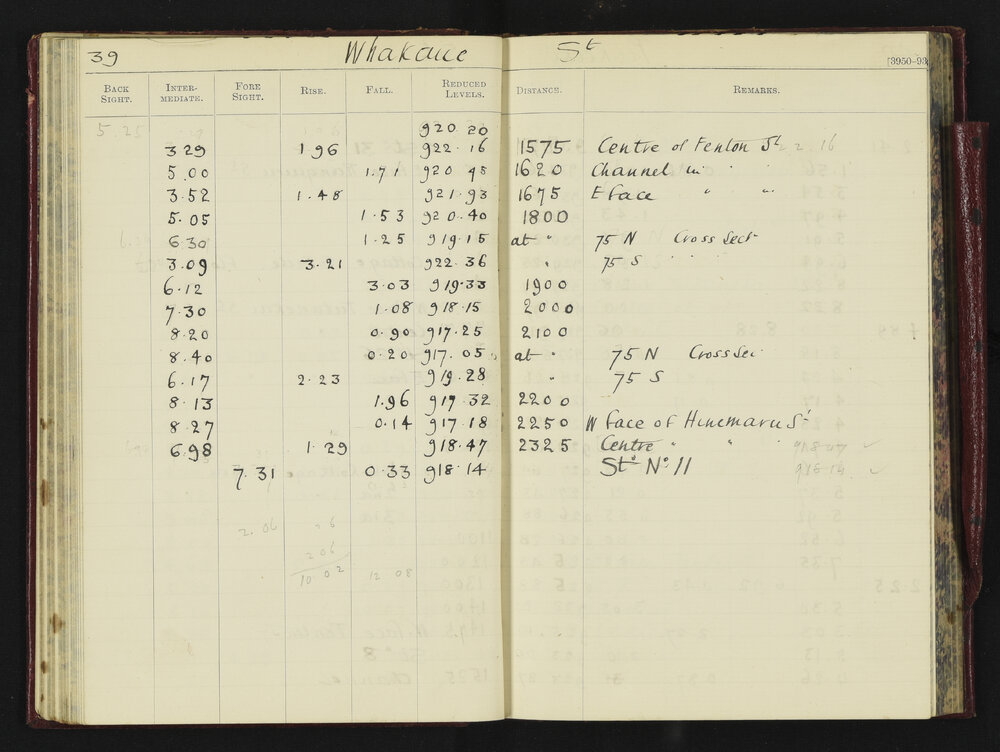 39 Whakaue St [3950-93
BACK SIGHT. INTER-MEDIATE. FORE SIGHT. RISE. FALL. REDUCED LEVELS. DISTANCE. REMARKS.
5.25 920.20
3.29 1.96 922.16 1575 Centre of Fenton St 22.16
5.00 1.71 920.45 1620 Channel in
3.52 1.48 921.93 1675 E face " "
5.05 1.53 920.40 1800
6.30 1.25 919.15 at " 75 N Cross Sect
3.09 3.21 922.36 " 75 S " "
6.12 3.03 919.33 1900
7.30 1.08 918.15 2000
8.20 0.90 917.25 2100
8.40 0.20 917.05 at " 75 N Cross Sec
6.17 2.23 919.28 " 75 S
8.13 1.96 917.32 2200
8.27 0.14 917.18 2250 W face of Hinemaru St
6.98 1.29 918.47 2325 Centre " "
7.31 0.33 918.14 Stn No 11 918.14
2.06
2 06
10 02 12 08